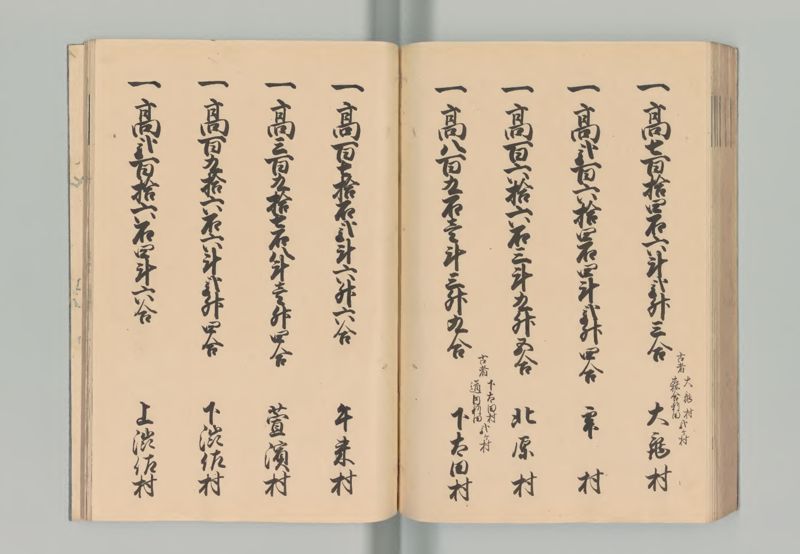 古者 大甕村 森合新田 弐ヶ村
一高七百拾四石六斗弐升三合 大甕村
一高弐百六拾四石四斗弐升四合 雫村
一高百六拾六石三斗九升五合 北原村
古者 下太田村 道内新田 弐ヶ村
一高八百九石壱斗三升九合 下太田村
一高百七拾石弐斗六升六合 牛来村
一高三百九拾七石八斗壱升四合 萱濱村
一高百九拾六石六斗弐升四合 下渋佐村
一高弐百拾六石四斗六合 上渋佐村